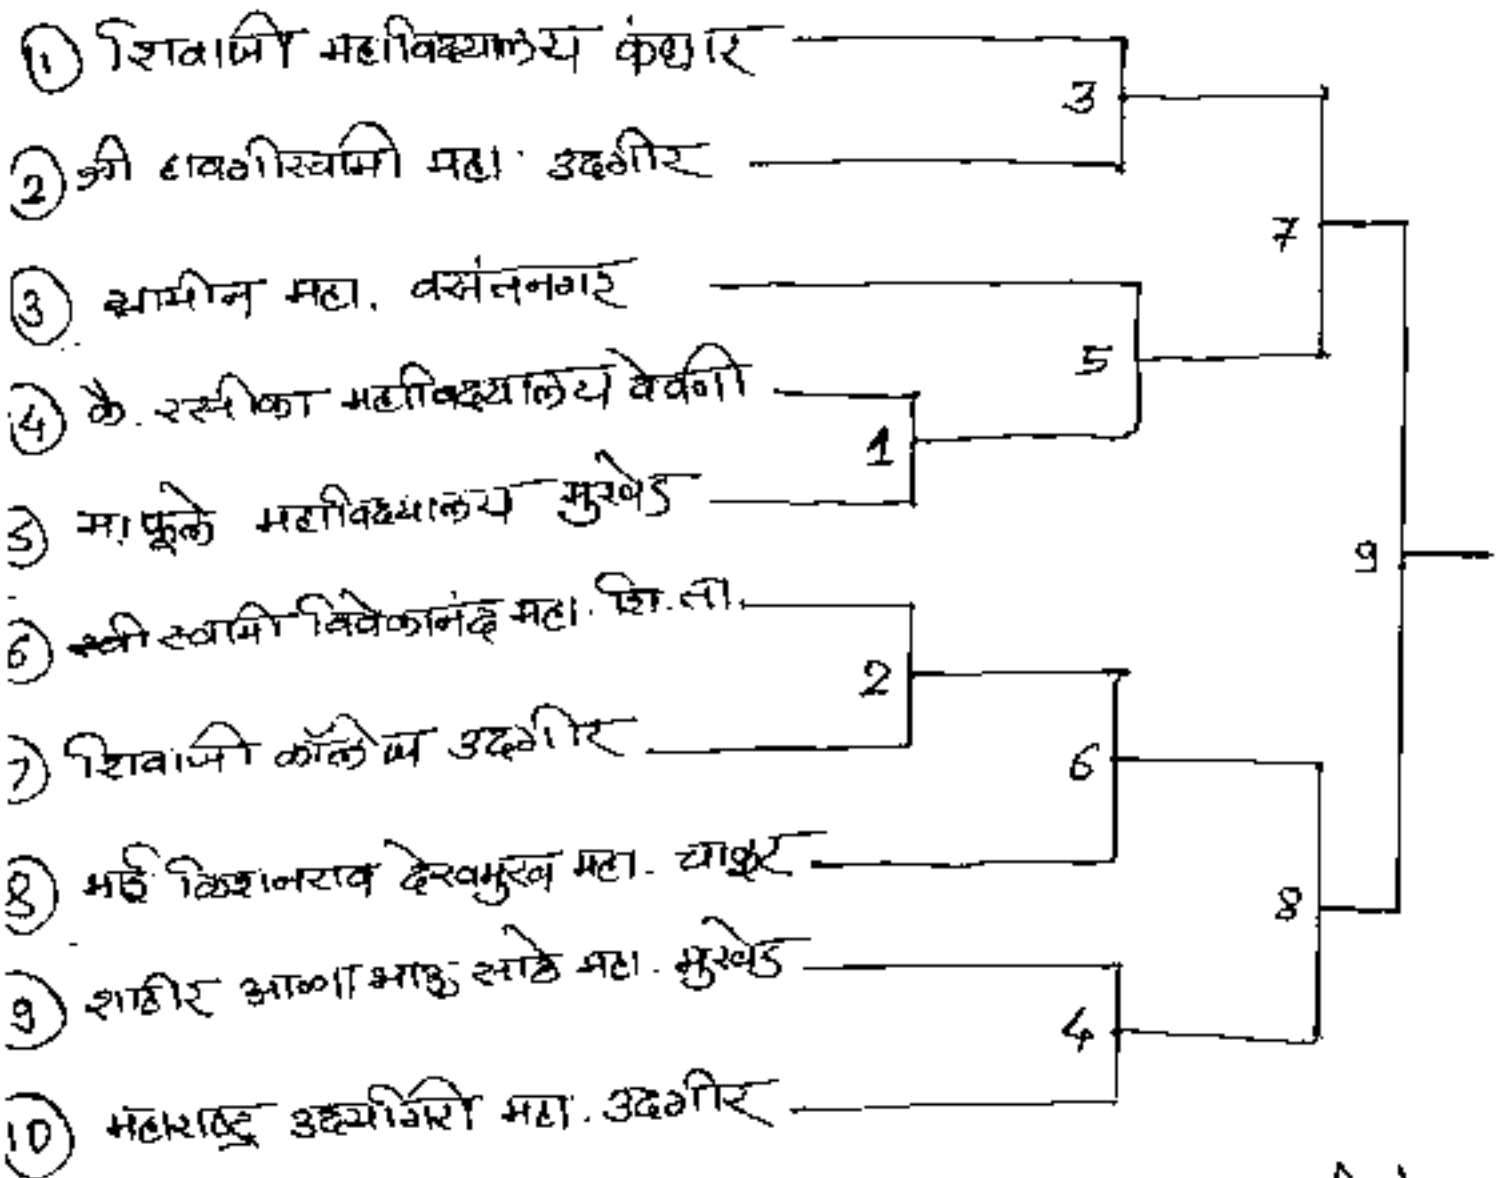 ① शिवाजी महाविद्यालय कंधार
② श्री हावगीस्वामी महा. उदगीर
③ ग्रामीन महा. वसंतनगर
④ कै. रसीका महाविद्यालय देवणी
5 म. फूले महाविद्यालय मुखेड
⑥ श्री स्वामी विवेकानंद महा. शि. ता.
7 शिवाजी कॉलेज उदगीर
⑧ भाई किशनराव देखमुख महा. चाकूर
⑨ शाहीर आण्णा भाऊ साठे महा. मुखेड
⑩ महाराष्ट्र उदयगिरी महा. उदगीर
3
7
5
1
9
2
6
8
4